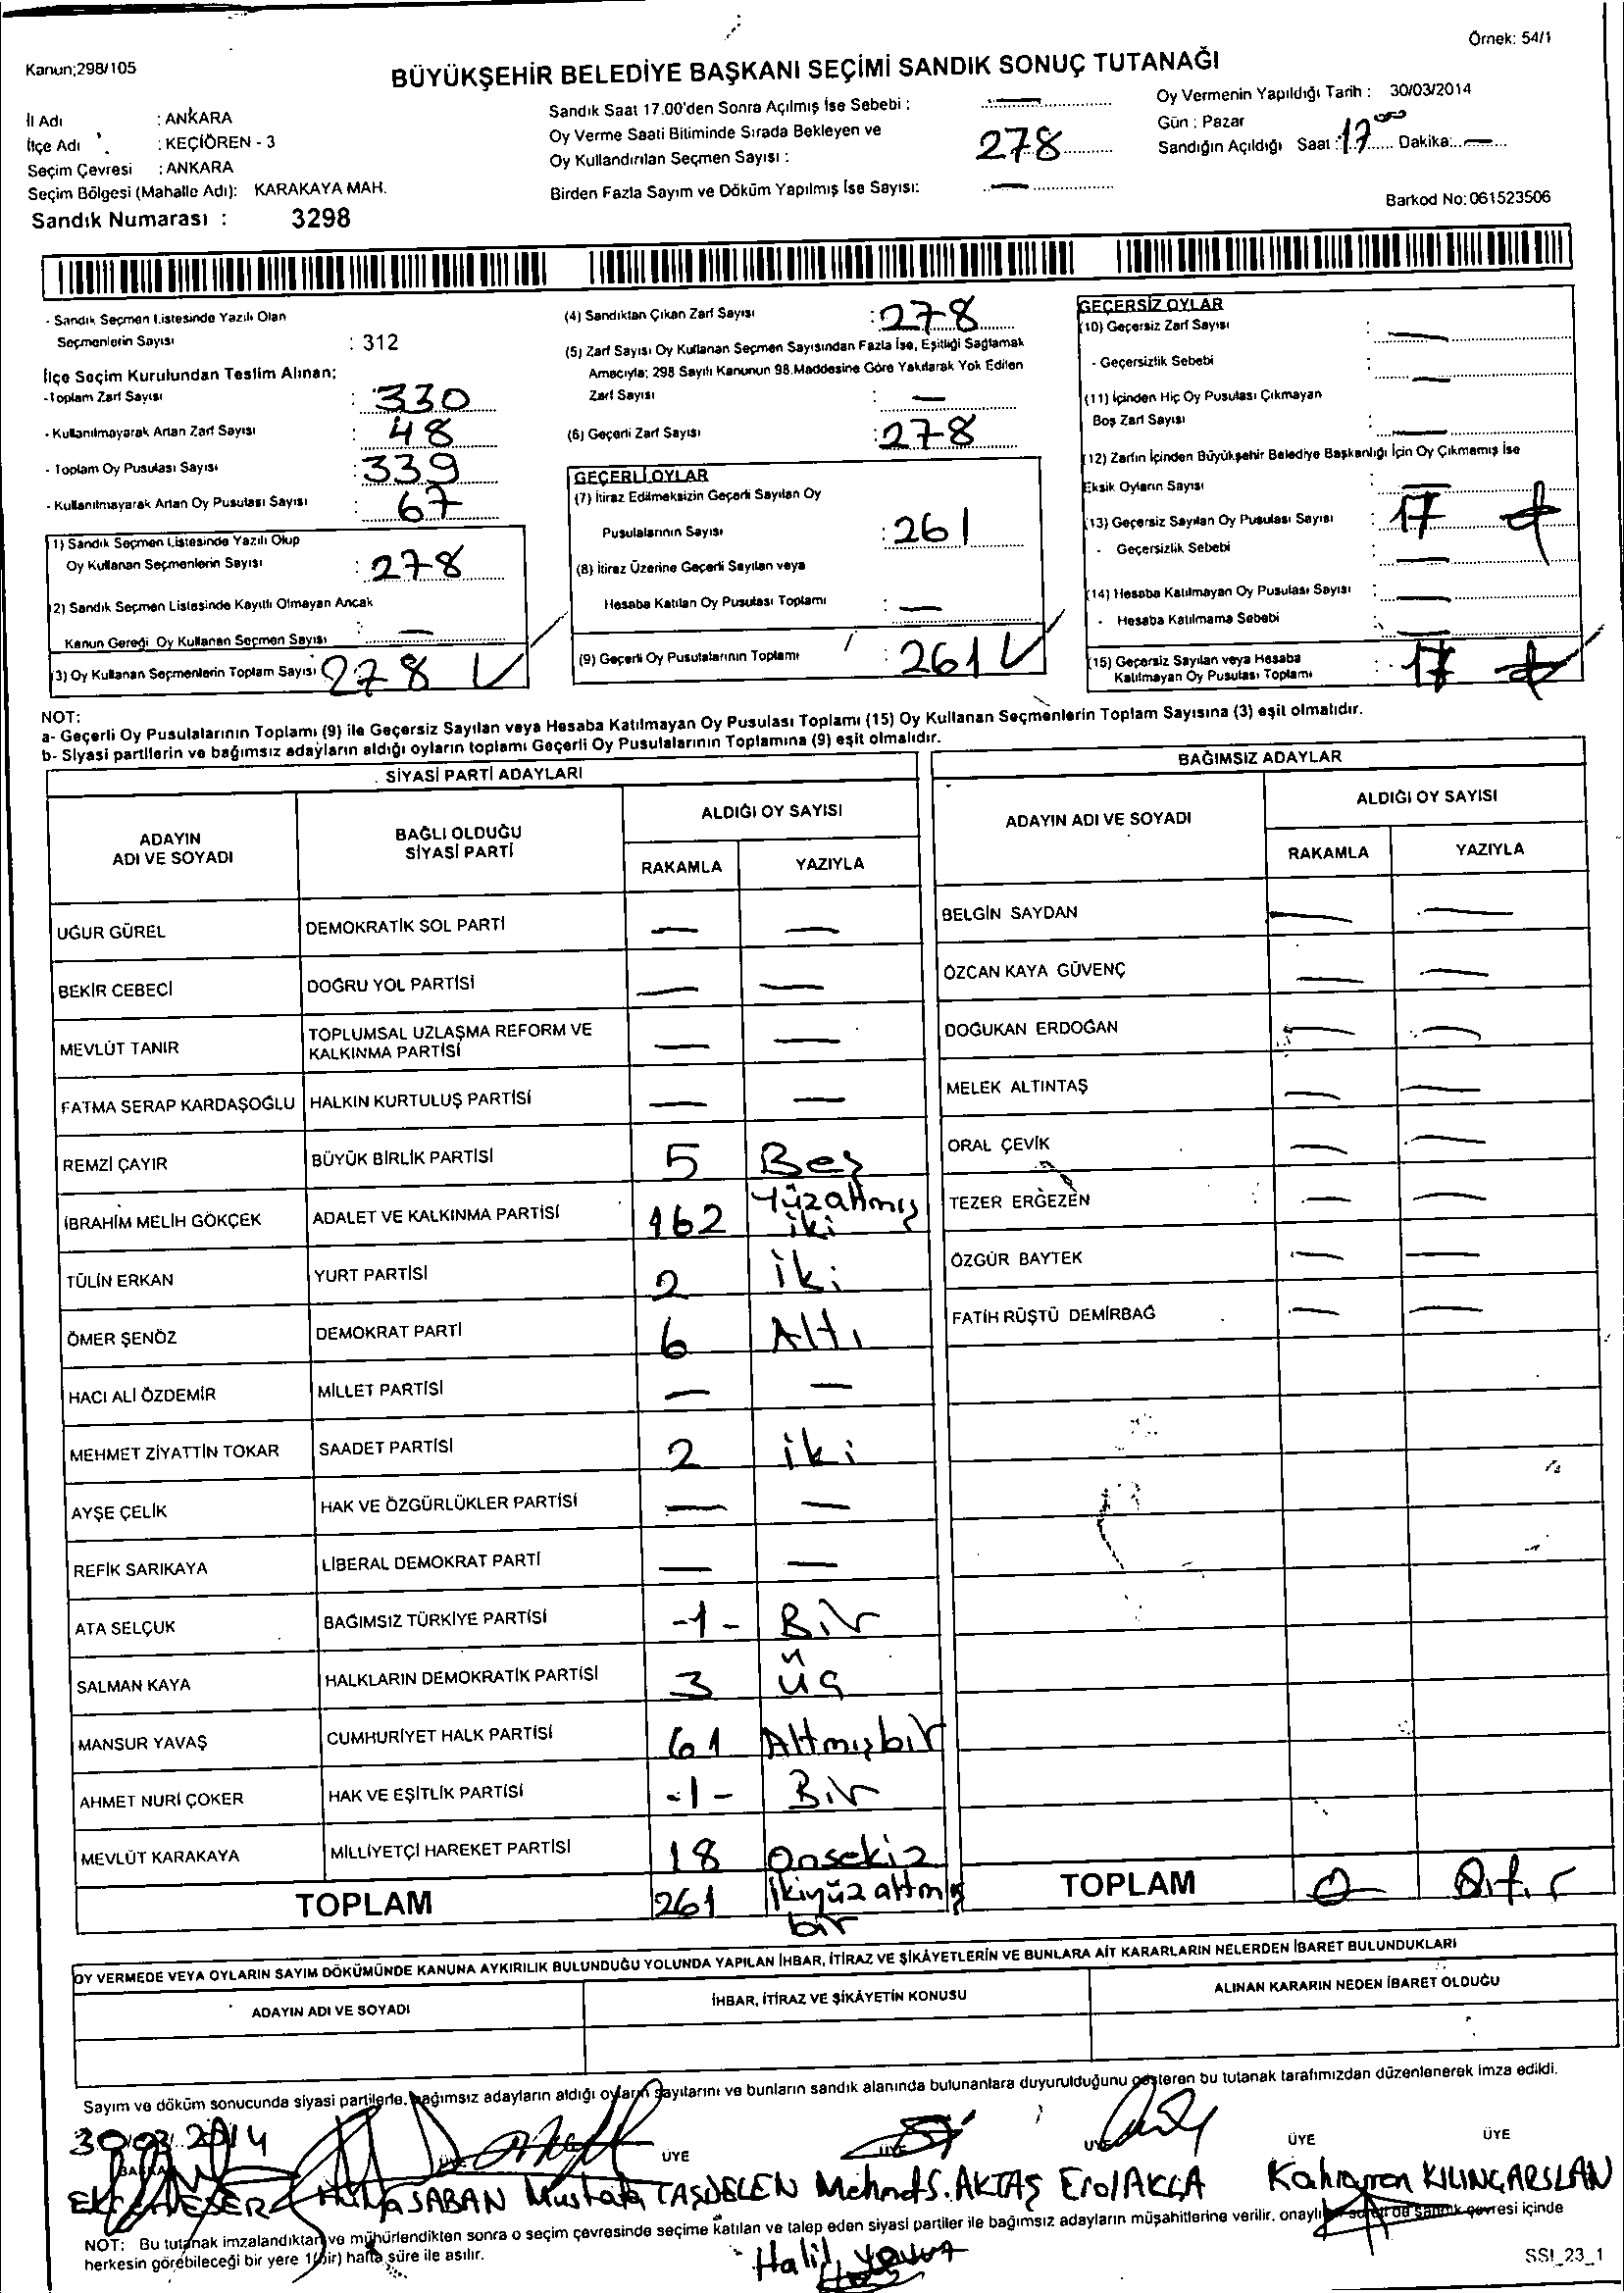 Örnek: 54/1
Kanun;298/105
BÜYÜKŞEHİR BELEDİYE BAŞKANI SEÇİMİ SANDIK SONUÇ TUTANAĞI
İl Adı : ANKARA
İlçe Adı : KEÇİÖREN - 3
Seçim Çevresi : ANKARA
Seçim Bölgesi (Mahalle Adı): KARAKAYA MAH.
Sandık Numarası : 3298
Sandık Saat 17.00'den Sonra Açılmış İse Sebebi : —
Oy Verme Saati Bitiminde Sırada Bekleyen ve
Oy Kullandırılan Seçmen Sayısı : 278
Birden Fazla Sayım ve Döküm Yapılmış İse Sayısı: —
Oy Vermenin Yapıldığı Tarih : 30/03/2014
Gün : Pazar
Sandığın Açıldığı Saat : 17 00 Dakika: —
Barkod No: 061523506
- Sandık Seçmen Listesinde Yazılı Olan
Seçmenlerin Sayısı : 312
İlçe Seçim Kurulundan Teslim Alınan;
- Toplam Zarf Sayısı : 330
- Kullanılmayarak Artan Zarf Sayısı : 48
- Toplam Oy Pusulası Sayısı : 339
- Kullanılmayarak Artan Oy Pusulası Sayısı : 67
1) Sandık Seçmen Listesinde Yazılı Olup
Oy Kullanan Seçmenlerin Sayısı : 278
2) Sandık Seçmen Listesinde Kayıtlı Olmayan Ancak
Kanun Gereği Oy Kullanan Seçmen Sayısı : —
(3) Oy Kullanan Seçmenlerin Toplam Sayısı 278
(4) Sandıktan Çıkan Zarf Sayısı : 278
(5) Zarf Sayısı Oy Kullanan Seçmen Sayısından Fazla İse, Eşitliği Sağlamak
Amacıyla; 298 Sayılı Kanunun 98.Maddesine Göre Yakılarak Yok Edilen
Zarf Sayısı : —
(6) Geçerli Zarf Sayısı : 278
GEÇERLİ OYLAR
(7) İtiraz Edilmeksizin Geçerli Sayılan Oy
Pusulalarının Sayısı : 261
(8) İtiraz Üzerine Geçerli Sayılan veya
Hesaba Katılan Oy Pusulası Toplamı : —
(9) Geçerli Oy Pusulalarının Toplamı : 261
GEÇERSİZ OYLAR
(10) Geçersiz Zarf Sayısı : —
- Geçersizlik Sebebi : —
(11) İçinden Hiç Oy Pusulası Çıkmayan
Boş Zarf Sayısı : —
(12) Zarfın İçinden Büyükşehir Belediye Başkanlığı İçin Oy Çıkmamış İse
Eksik Oyların Sayısı : —
(13) Geçersiz Sayılan Oy Pusulası Sayısı : 17
- Geçersizlik Sebebi : —
(14) Hesaba Katılmayan Oy Pusulası Sayısı : —
- Hesaba Katılmama Sebebi : —
(15) Geçersiz Sayılan veya Hesaba
Katılmayan Oy Pusulası Toplamı : 17
NOT:
a- Geçerli Oy Pusulalarının Toplamı (9) ile Geçersiz Sayılan veya Hesaba Katılmayan Oy Pusulası Toplamı (15) Oy Kullanan Seçmenlerin Toplam Sayısına (3) eşit olmalıdır.
b- Siyasi partilerin ve bağımsız adayların aldığı oyların toplamı Geçerli Oy Pusulalarının Toplamına (9) eşit olmalıdır.
SİYASİ PARTİ ADAYLARI
ADAYIN ADI VE SOYADI BAĞLI OLDUĞU SİYASİ PARTİ ALDIĞI OY SAYISI
RAKAMLA YAZIYLA
UĞUR GÜREL DEMOKRATİK SOL PARTİ — —
BEKİR CEBECİ DOĞRU YOL PARTİSİ — —
MEVLÜT TANIR TOPLUMSAL UZLAŞMA REFORM VE KALKINMA PARTİSİ — —
FATMA SERAP KARDAŞOĞLU HALKIN KURTULUŞ PARTİSİ — —
REMZİ ÇAYIR BÜYÜK BİRLİK PARTİSİ 5 Beş
İBRAHİM MELİH GÖKÇEK ADALET VE KALKINMA PARTİSİ 162 Yüzatmış iki
TÜLİN ERKAN YURT PARTİSİ 2 iki
ÖMER ŞENÖZ DEMOKRAT PARTİ 6 Altı
HACI ALİ ÖZDEMİR MİLLET PARTİSİ — —
MEHMET ZİYATTİN TOKAR SAADET PARTİSİ 2 iki
AYŞE ÇELİK HAK VE ÖZGÜRLÜKLER PARTİSİ — —
REFİK SARIKAYA LİBERAL DEMOKRAT PARTİ — —
ATA SELÇUK BAĞIMSIZ TÜRKİYE PARTİSİ -1- Bir
SALMAN KAYA HALKLARIN DEMOKRATİK PARTİSİ 3 üç
MANSUR YAVAŞ CUMHURİYET HALK PARTİSİ 61 Altmışbir
AHMET NURİ ÇOKER HAK VE EŞİTLİK PARTİSİ -1- Bir
MEVLÜT KARAKAYA MİLLİYETÇİ HAREKET PARTİSİ 18 Onsekiz
TOPLAM 261 İkiyüzaltmış bir
BAĞIMSIZ ADAYLAR
ADAYIN ADI VE SOYADI ALDIĞI OY SAYISI
RAKAMLA YAZIYLA
BELGİN SAYDAN — —
ÖZCAN KAYA GÜVENÇ — —
DOĞUKAN ERDOĞAN — —
MELEK ALTINTAŞ — —
ORAL ÇEVİK — —
TEZER ERGEZEN — —
ÖZGÜR BAYTEK — —
FATİH RÜŞTÜ DEMİRBAĞ — —
TOPLAM 0 Sıfır
OY VERMEDE VEYA OYLARIN SAYIM DÖKÜMÜNDE KANUNA AYKIRILIK BULUNDUĞU YOLUNDA YAPILAN İHBAR, İTİRAZ VE ŞİKÂYETLERİN VE BUNLARA AİT KARARLARIN NELERDEN İBARET BULUNDUKLARI
ADAYIN ADI VE SOYADI İHBAR, İTİRAZ VE ŞİKÂYETİN KONUSU ALINAN KARARIN NEDEN İBARET OLDUĞU
Sayım ve döküm sonucunda siyasi partilerle, bağımsız adayların aldığı oyların sayılarını ve bunların sandık alanında bulunanlara duyurulduğunu gösteren bu tutanak tarafımızdan düzenlenerek imza edildi.
30/03/2014
BAŞKAN ÜYE ÜYE ÜYE ÜYE ÜYE ÜYE
ŞABAN Mustafa TAŞDELEN Mehmet S. AKTAŞ Erol AKÇA Kahraman KILINÇARSLAN
NOT: Bu tutanak imzalandıktan ve mühürlendikten sonra o seçim çevresinde seçime katılan ve talep eden siyasi partiler ile bağımsız adayların müşahitlerine verilir, onaylı sureti de sandık çevresi içinde
herkesin görebileceği bir yere 1(bir) hafta süre ile asılır.
Halil Yavuz
SSI_23_1